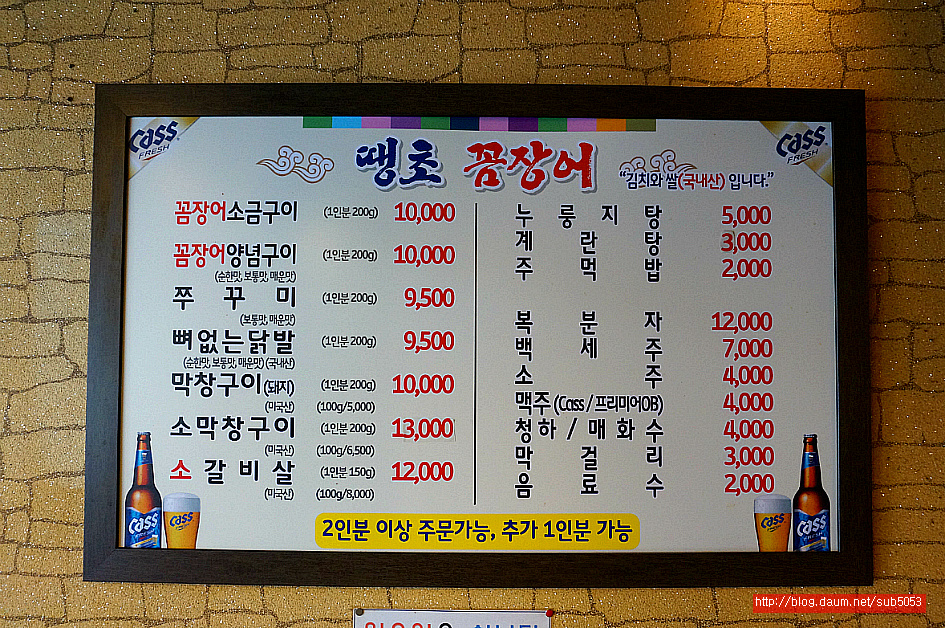 Cass
FRESH
땡초 꼼장어
Cass
FRESH
"김치와 쌀(국내산) 입니다."
꼼장어소금구이 (1인분 200g) 10,000
꼼장어양념구이 (1인분 200g) 10,000
(순한맛, 보통맛, 매운맛)
쭈꾸미 (1인분 200g) 9,500
(보통맛, 매운맛)
뼈없는닭발 (1인분 200g) 9,500
(순한맛, 보통맛, 매운맛) (국내산)
막창구이(돼지) (1인분 200g) 10,000
(미국산) (100g/5,000)
소막창구이 (1인분 200g) 13,000
(미국산) (100g/6,500)
소갈비살 (1인분 150g) 12,000
(미국산) (100g/8,000)
누룽지탕 5,000
계란탕 3,000
주먹밥 2,000
복분자 12,000
백세주 7,000
소주 4,000
맥주 (Cass / 프리미어OB) 4,000
청하 / 매화수 4,000
막걸리 3,000
음료수 2,000
Cass
Cass
2인분 이상 주문가능, 추가 1인분 가능
Cass
Cass
http://blog.daum.net/sub5053